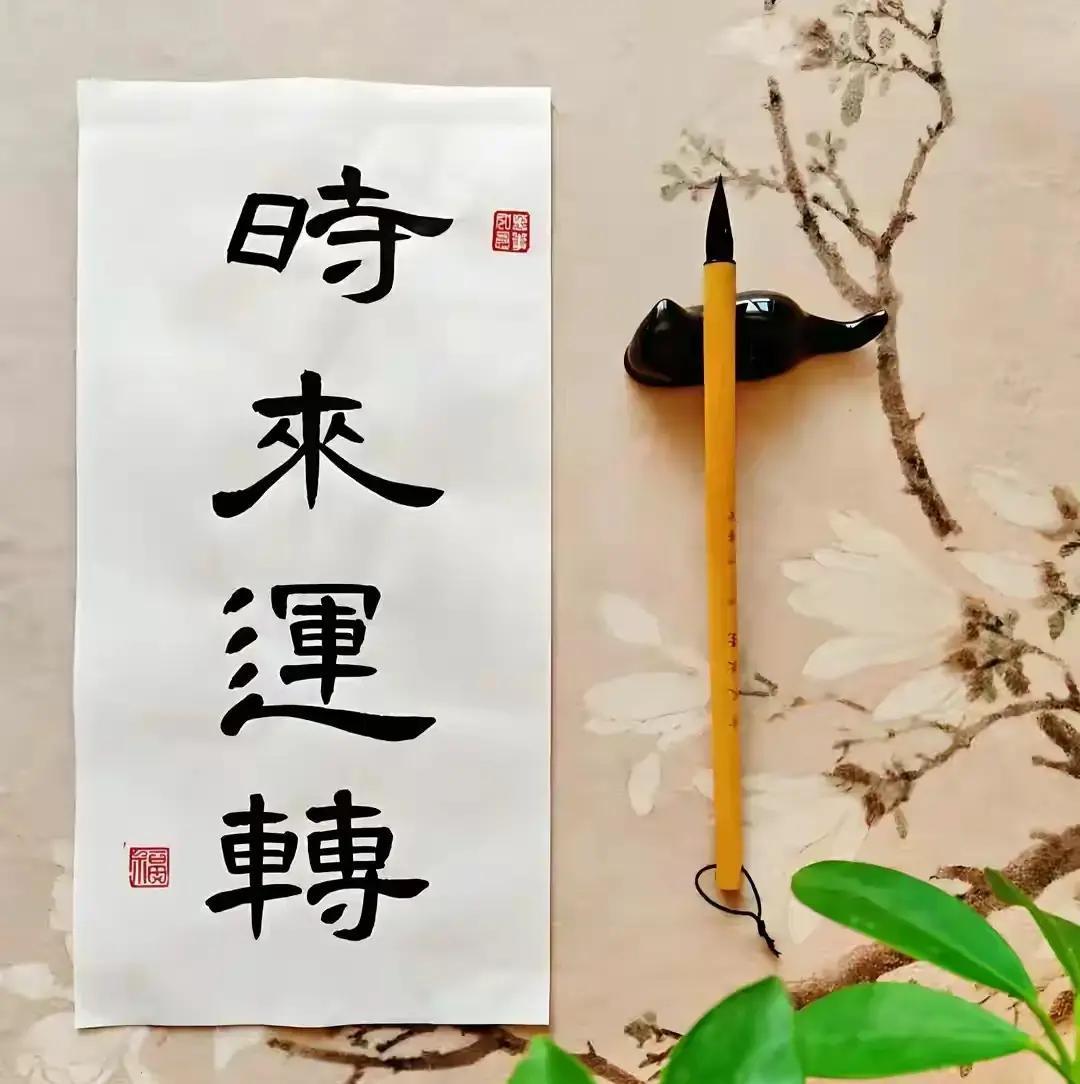 時來運轉
福